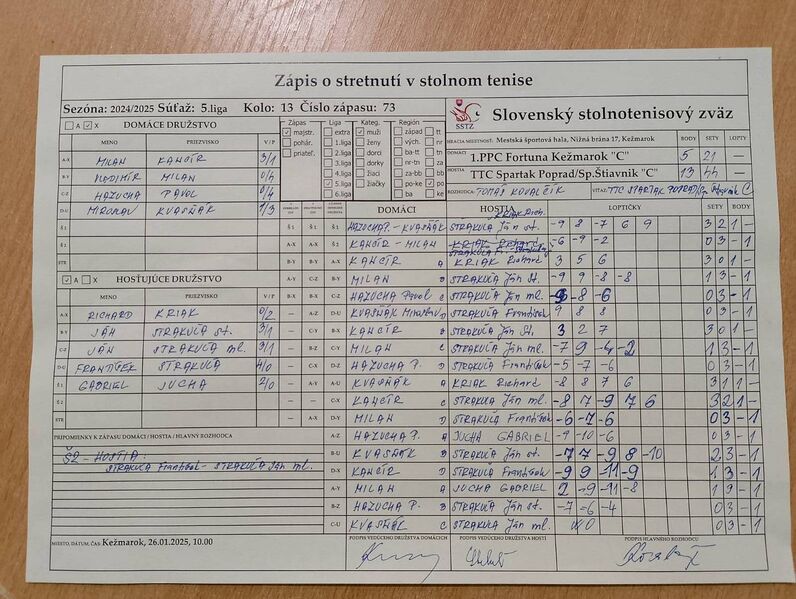 Zápis o stretnutí v stolnom tenise
Sezóna: 2024/2025 Súťaž: 5.liga Kolo: 13 Číslo zápasu: 73
SSTZ Slovenský stolnotenisový zväz
HRACIA MIESTNOSŤ: Mestská športová hala, Nižná brána 17, Kežmarok BODY SETY LOPTY
DOMÁCI 1.PPC Fortuna Kežmarok "C" 5 21 —
HOSTIA TTC Spartak Poprad/Sp.Štiavnik "C" 13 44 —
ROZHODCA: TOMÁŠ KOVALČÍK VÍŤAZ: TTC SPARTAK POPRAD/
A X DOMÁCE DRUŽSTVO
MENO PRIEZVISKO V/P
A-X MILAN KANCÍR 3/1
B-Y VLADIMÍR MILAN 0/4
C-Z HAZUCHA PAVOL 0/4
D-U MIROSLAV KVASŇÁK 1/3
Š1
Š2
STR
A X HOSŤUJÚCE DRUŽSTVO
MENO PRIEZVISKO V/P
A-X RICHARD KRIAK 0/2
B-Y JÁN STRAKUĽA st. 3/1
C-Z JÁN STRAKUĽA ml. 3/1
D-U FRANTIŠEK STRAKUĽA 4/0
Š1 GABRIEL JUCHA 2/0
Š2
STR
PRIPOMIENKY K ZÁPASU DOMÁCI / HOSTIA / HLAVNÝ ROZHODCA
Š2 - HOSTIA:
STRAKUĽA František - STRAKUĽA Ján ml.
MIESTO, DÁTUM, ČAS: Kežmarok, 26.01.2025, 10.00
Zápas Liga Kateg. Región
majstr. extra muži západ tt
pohár. 1.liga ženy vých. nr
priateľ. 2.liga dorci ba-tt tn
3.liga dorky nr-tn za
4.liga žiaci za-bb bb
5.liga žiačky po-ke po
6.liga ba ke
DOMÁCI HOSTIA LOPTIČKY SETY BODY
HAZUCHA P. - KVASŇÁK STRAKUĽA Ján st. KRIAK Rich. -9 8 -7 6 9 3 2 1 -
KANCÍR - MILAN -6 -9 -2 0 3 - 1
KANCÍR A KRIAK Richard 3 5 6 3 0 1 -
MILAN B STRAKUĽA Ján st. -9 9 -8 -8 1 3 - 1
HAZUCHA Pavol C STRAKUĽA Ján ml. -8 -6 0 3 - 1
KVASŇÁK Miroslav D STRAKUĽA František 9 8 8 0 3 - 1
KANCÍR B STRAKUĽA Ján St. 3 2 7 3 0 1 -
MILAN C STRAKUĽA Ján ml. -7 9 -4 -2 1 3 - 1
HAZUCHA P. D STRAKUĽA František -5 -7 -6 0 3 - 1
KVASŇÁK A KRIAK Richard -8 8 7 6 3 1 1 -
KANCÍR C STRAKUĽA Ján ml. -8 7 -9 7 6 3 2 1 -
MILAN D STRAKUĽA František -6 -7 -6 0 3 - 1
HAZUCHA P. A JUCHA GABRIEL -9 -10 -6 0 3 - 1
KVASŇÁK B STRAKUĽA Ján st. -7 7 -9 8 -10 2 3 - 1
KANCÍR D STRAKUĽA František -9 9 -11 -9 1 3 - 1
MILAN A JUCHA GABRIEL 2 -9 -11 -8 1 3 - 1
HAZUCHA P. B STRAKUĽA Ján st -7 -6 -4 0 3 - 1
KVASŇÁK C STRAKUĽA Ján ml. WO 0 3 - 1
PODPIS VEDÚCEHO DRUŽSTVA DOMÁCICH PODPIS VEDÚCEHO DRUŽSTVA HOSTÍ PODPIS HLAVNÉHO ROZHODCU